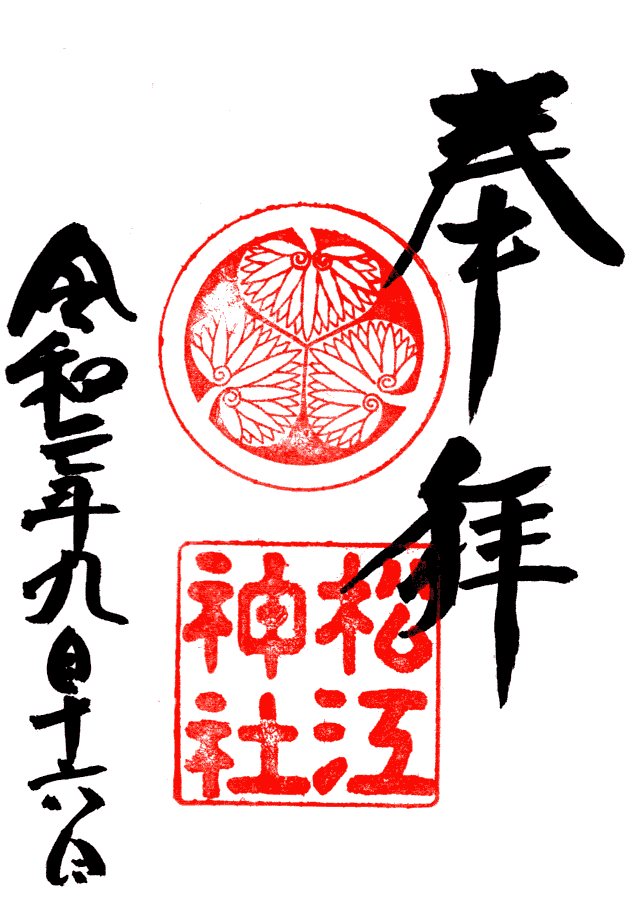 奉拝
松江
神社
令和三年九月十六日